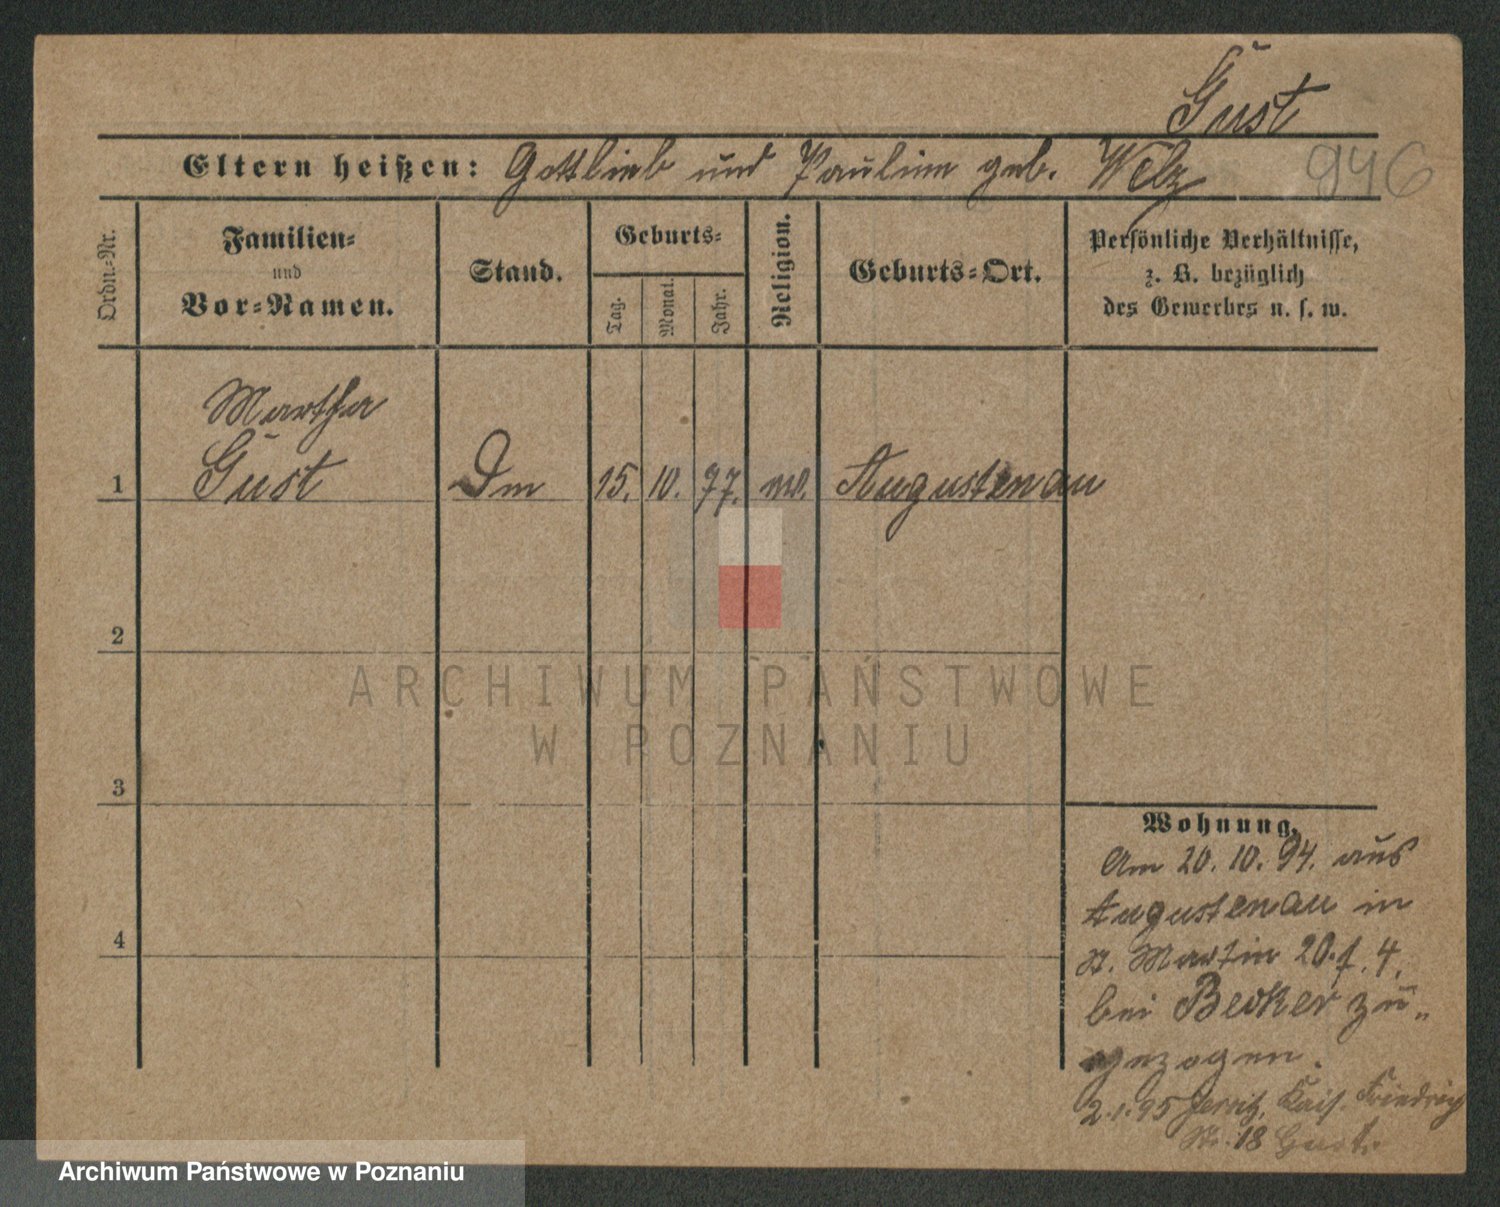 Gust
Eltern heißen: Gottlieb und Pauline geb. Welz
946
Ordn.-Nr.
Familien-
und
Vor-Namen.
Stand.
Geburts-
Tag.
Monat.
Jahr.
Religion.
Geburts-Ort.
Persönliche Verhältnisse,
z. B. bezüglich
des Gewerbes u. s. w.
Martha
1 Gust Dm 15. 10. 77. ev. Augustenau
2
3
4
ARCHIWUM PAŃSTWOWE
W POZNANIU
Wohnung.
Am 20. 10. 94. aus
Augustenau in
St. Martin 20. f. 4.
bei Becker zu„
gezogen.
2.1.95 Jersitz, Kais. Friedrich
Str. 18
Archiwum Państwowe w Poznaniu